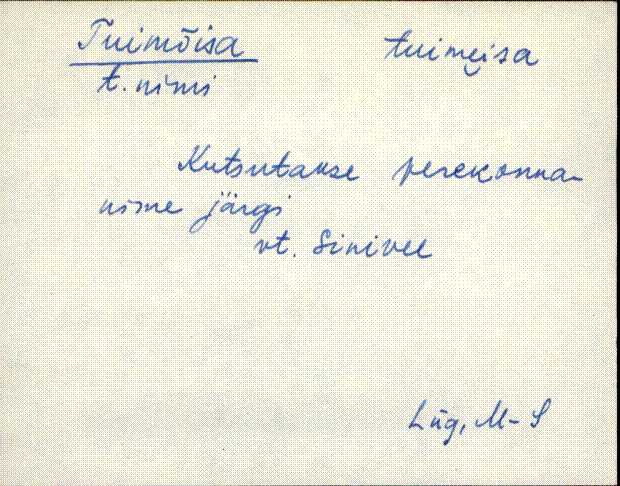 Tuimõisa tuimei̮sa
t. nimi
Kutsutakse perekonna-
nime järgi
vt. Sinivee
Lüg, M-S